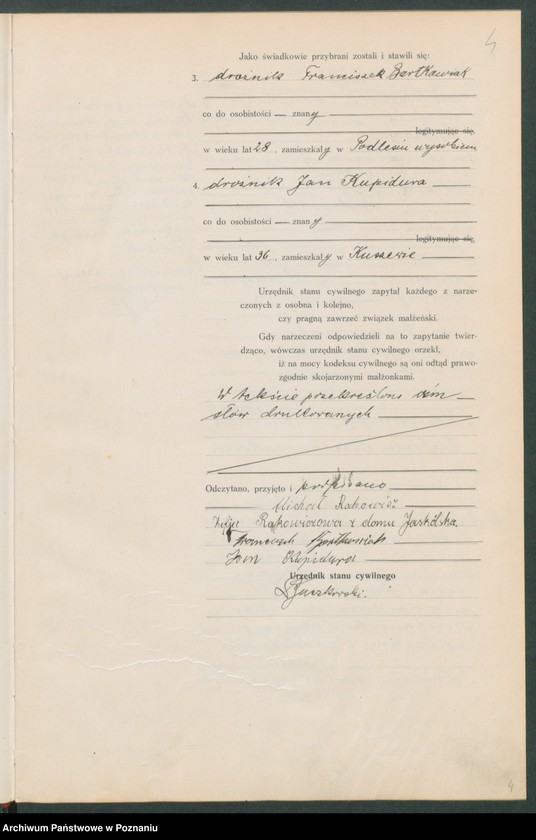 4
Jako świadkowie przybrani zostali i stawili się:
3. drożnik Franciszek Bartkowiak
co do osobistości — znany
legitymując się,
w wieku lat 28, zamieszkały w Podlesiu wysokiem
4. drożnik Jan Kupidura
co do osobistości — znany
legitymując się,
w wieku lat 36, zamieszkały w Kuszewie
Urzędnik stanu cywilnego zapytał każdego z narze-
czonych z osobna i kolejno,
czy pragną zawrzeć związek małżeński.
Gdy narzeczeni odpowiedzieli na to zapytanie twier-
dząco, wówczas urzędnik stanu cywilnego orzekł,
iż na mocy kodeksu cywilnego są oni odtąd prawo-
zgodnie skojarzonymi małżonkami.
W tekście przekreślono osm
słów drukowanych
Odczytano, przyjęto i podpisano
Michał Rakowicz
Rąkowiczowa z domu Jaskólska
Franciszek Bartkowiak
Jan Kupidura
Urzędnik stanu cywilnego
4
Archiwum Państwowe w Poznaniu